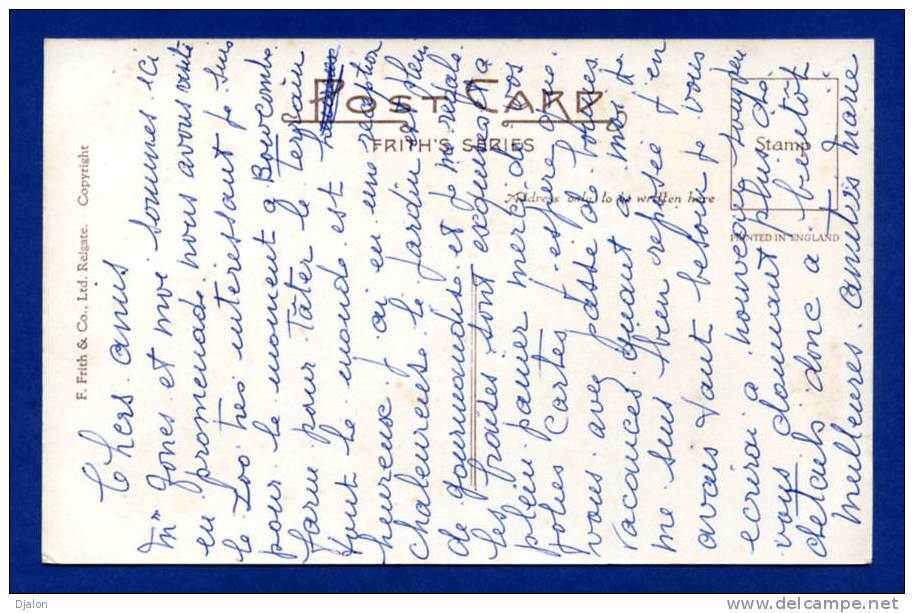 POST CARD
FRITH'S SERIES
Address only to be written here
Stamp
PRINTED IN ENGLAND
F. Frith & Co., Ltd. Reigate. Copyright
Chers amis sommes ici
Mme Jones et moi nous avons visité
en promenade
le Zoo très interessant je suis
pour le moment a Bovecombe
farm pour tâter le terrain
tout le monde est
heureux j'ai eu une reception
chaleureuse le jardin est plein
de gourmandise et je m'regale.
les fraises sont exquises on a
plein panier merci de vos
jolies cartes j'espère que
vous avez passé de bonnes
vacances quant a moi je
me suis bien reposée j'en
avais tant besoin je vous
ecrirai a nouveau sous peu
vous donnant plus de
details donc a bientôt
meilleures amitiés Marie
Djalon
http://www.delcampe.net